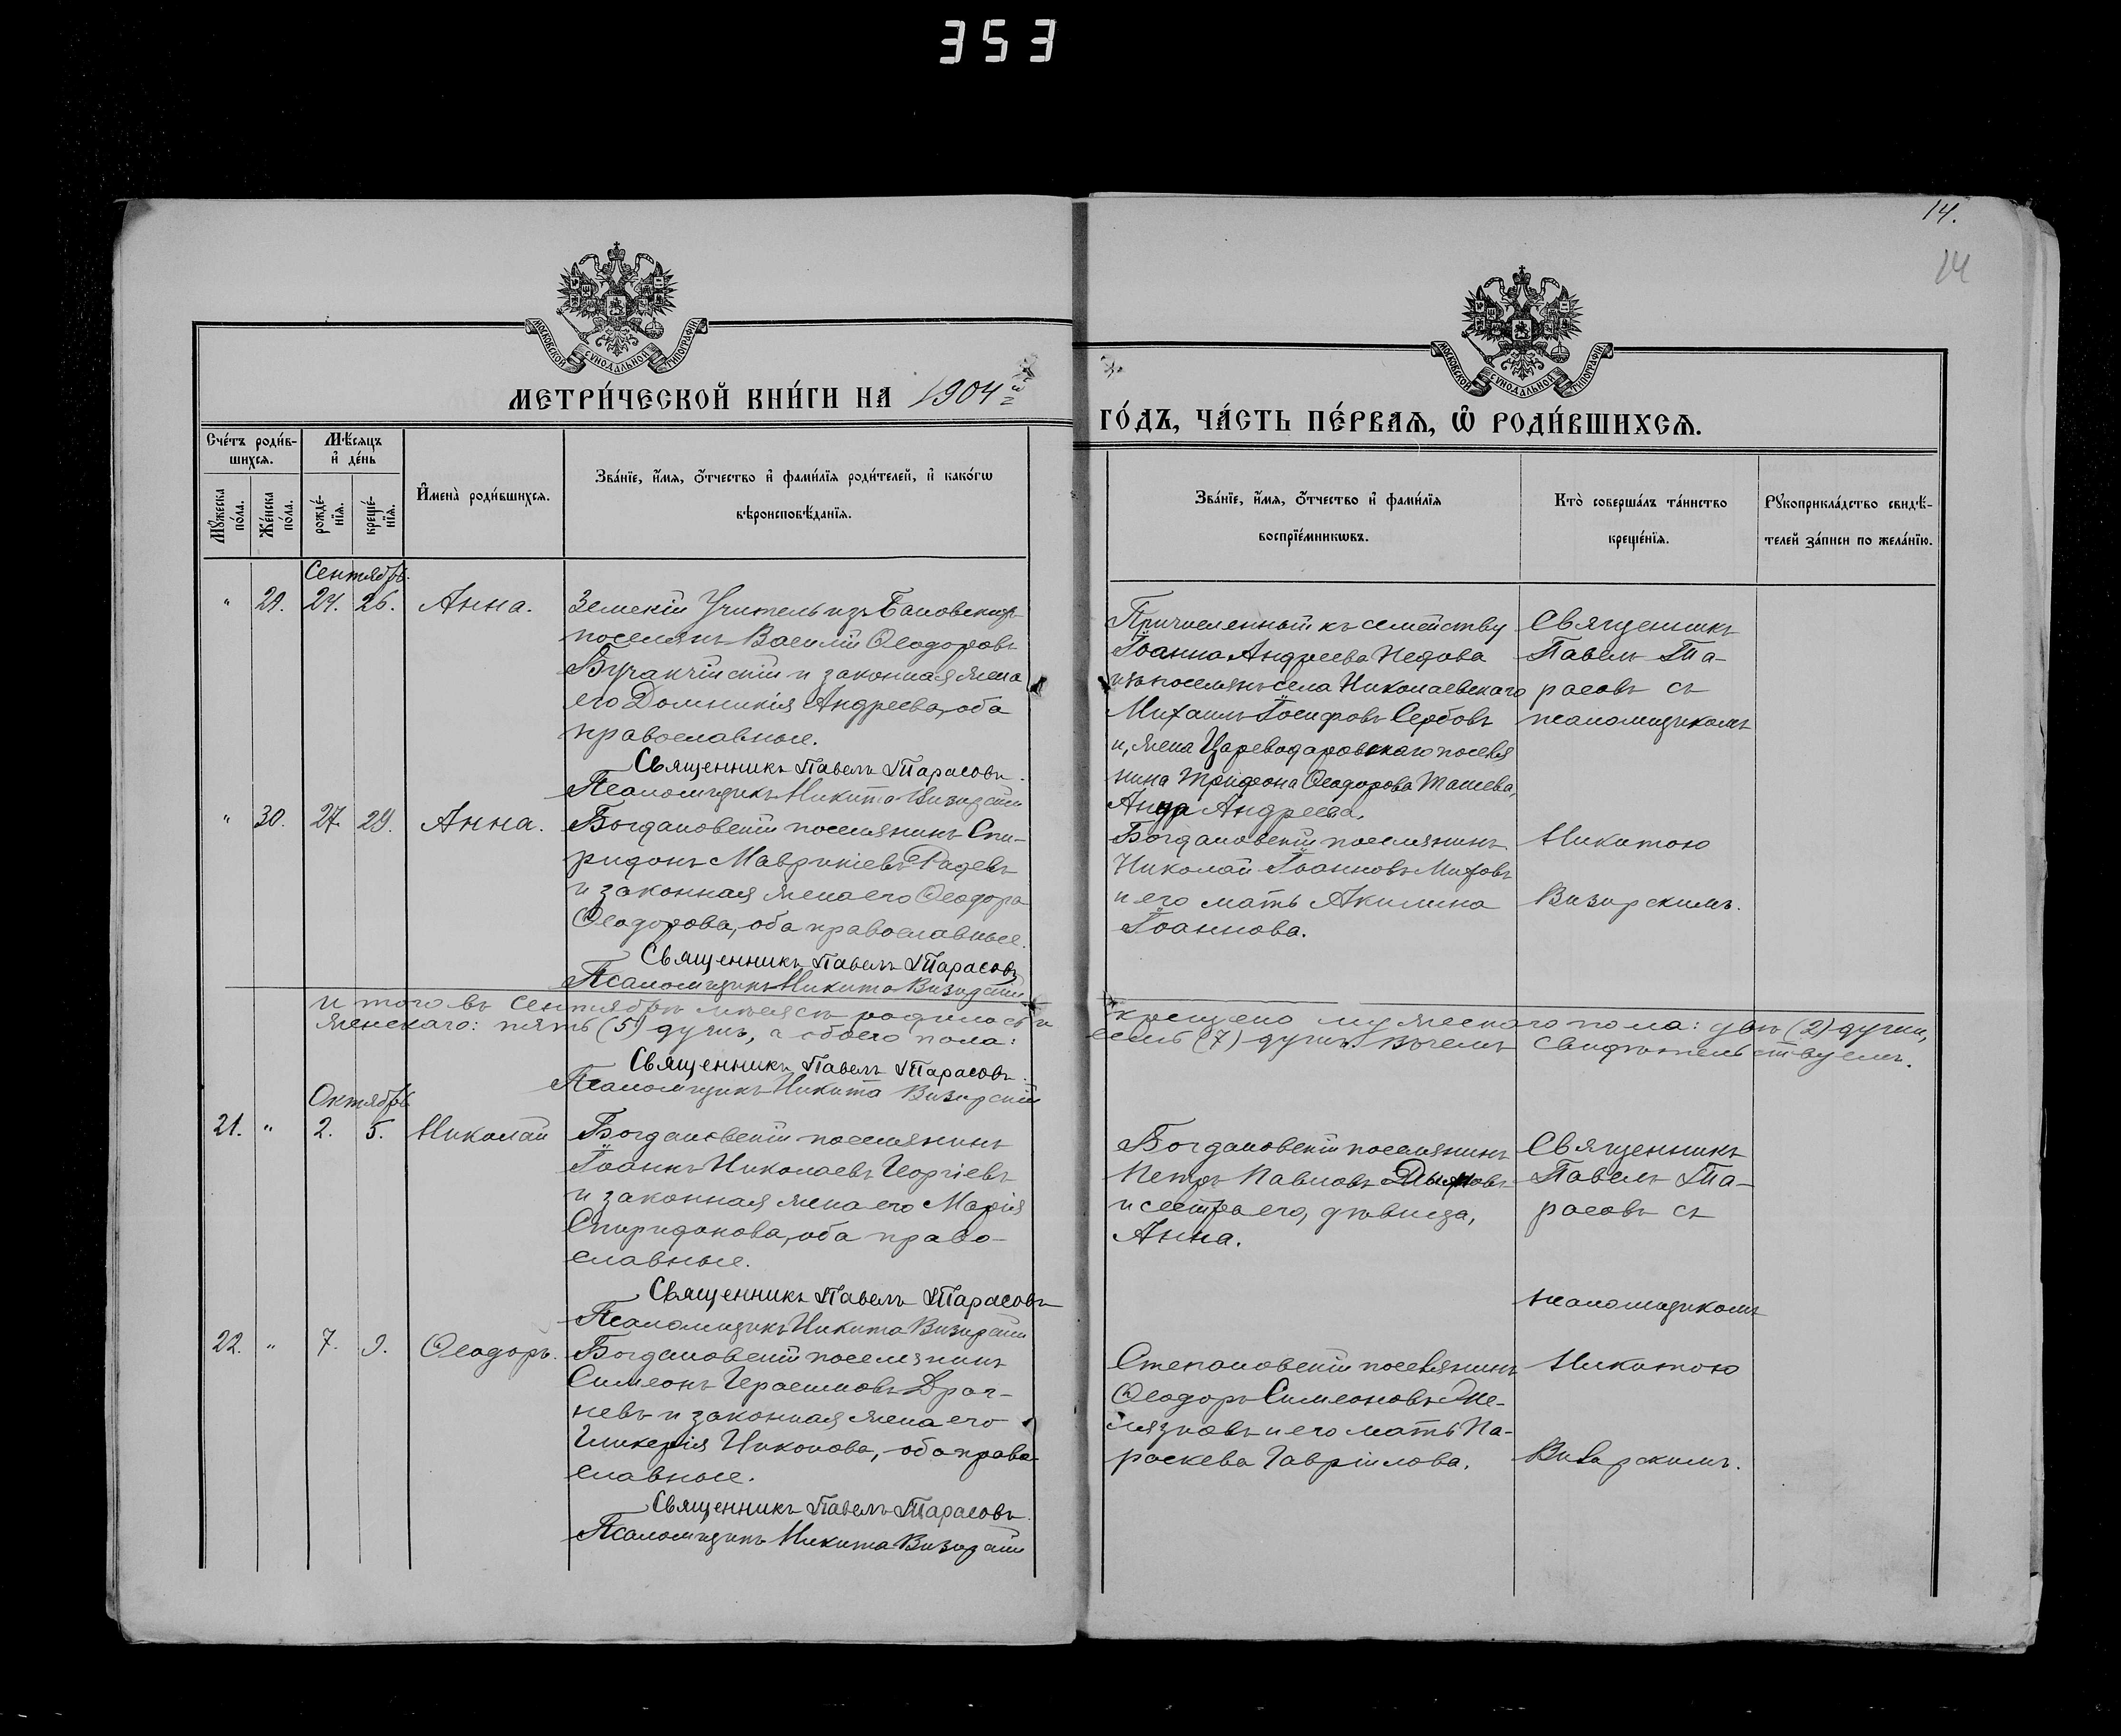 353
14.
14
МОСКОВСКОЙ СѴНОДАЛЬНОЙ ТИПОГРАФІИ
МОСКОВСКОЙ СѴНОДАЛЬНОЙ ТИПОГРАФІИ
МЕТРИ́ЧЕСКОЙ КНИ́ГИ НА 1904й
ГО́ДЪ, ЧА́СТЬ ПЕ́РВАѦ, Ѡ҆ РОДИ́ВШИХСѦ.
Сче́тъ роди́в-
шихся.
Мѣ́сяцъ
и҆ де́нь
Мꙋ́жеска по́ла.
Же́нска по́ла.
рожде́-
нїя.
креще́-
нїя.
И҆мена̀ роди́вшихся.
Зва́нїе, и҆́мя, ѻ҆́тчество и҆ фами́лїя роди́телей, и҆ како́гѡ
вѣроисповѣ́данїя.
Зва́нїе, и҆́мя, ѻ҆́тчество и҆ фами́лїя
воспрїе́мникѡвъ.
Кто̀ соверша́лъ та́инство
креще́нїя.
Рꙋкоприкла́дство свидѣ́-
телей за́писи по жела́нїю.
Сентябрь.
" 29. 24. 26. Анна.
Земскій Учитель изъ
поселянъ Василій Ѳеодоровъ
и законная жена
его Домникія Андреева, оба
православные.
Священникъ Павелъ Тарасовъ.
Псаломщикъ Никита Визирскій
Причисленный къ семейству
Іоанна Андреева Недова
изъ поселянъ села Николаевскаго
Михаилъ Іосифовъ Сербовъ
и, жена Цареводаровскаго поселя
нина Трифона Ѳеодорова Ташева,
Анна Андреева.
Священникъ
Павелъ Та-
расовъ съ
псаломщикомъ
" 30. 27. 29. Анна.
Богдановскій поселянинъ Спи-
ридонъ Маврикіевъ Радевъ
и законная жена его Ѳеодора
Ѳеодорова, оба православные.
Священникъ Павелъ Тарасовъ
Псаломщикъ Никита Визирскій
Богдановскій поселянинъ
Николай Іоанновъ Митовъ
и его мать Акилина
Іоаннова.
Никитою
Визирскимъ.
Итого въ Сентябрѣ мѣсяцѣ родилось и
крещено мужескаго пола: двѣ (2) души,
женскаго: пять (5) душъ, а обоего пола:
семь (7) душъ. Въ чемъ свидѣтельствуемъ.
Священникъ Павелъ Тарасовъ.
Псаломщикъ Никита Визирскій
Октябрь
21. " 2. 5. Николай
Богдановскій поселянинъ
Іоаннъ Николаевъ Георгіевъ
и законная жена его Марія
Спиридонова, оба право-
славные.
Священникъ Павелъ Тарасовъ
Псаломщикъ Никита Визирскій
Богдановскій поселянинъ
Петръ Павловъ
и сестра его, дѣвица,
Анна.
Священникъ
Павелъ Та-
расовъ съ
псаломщикомъ
22. " 7. 9. Ѳеодоръ.
Богдановскій поселянинъ
Симеонъ Герасимовъ Драг-
невъ и законная жена его
Гликерія Никонова, оба право-
славные.
Священникъ Павелъ Тарасовъ.
Псаломщикъ Никита Визирскій
Степановскій поселянинъ
Ѳеодоръ Симеоновъ Же-
лязковъ и его мать Па-
раскева Гавріилова.
Никитою
Визирскимъ.